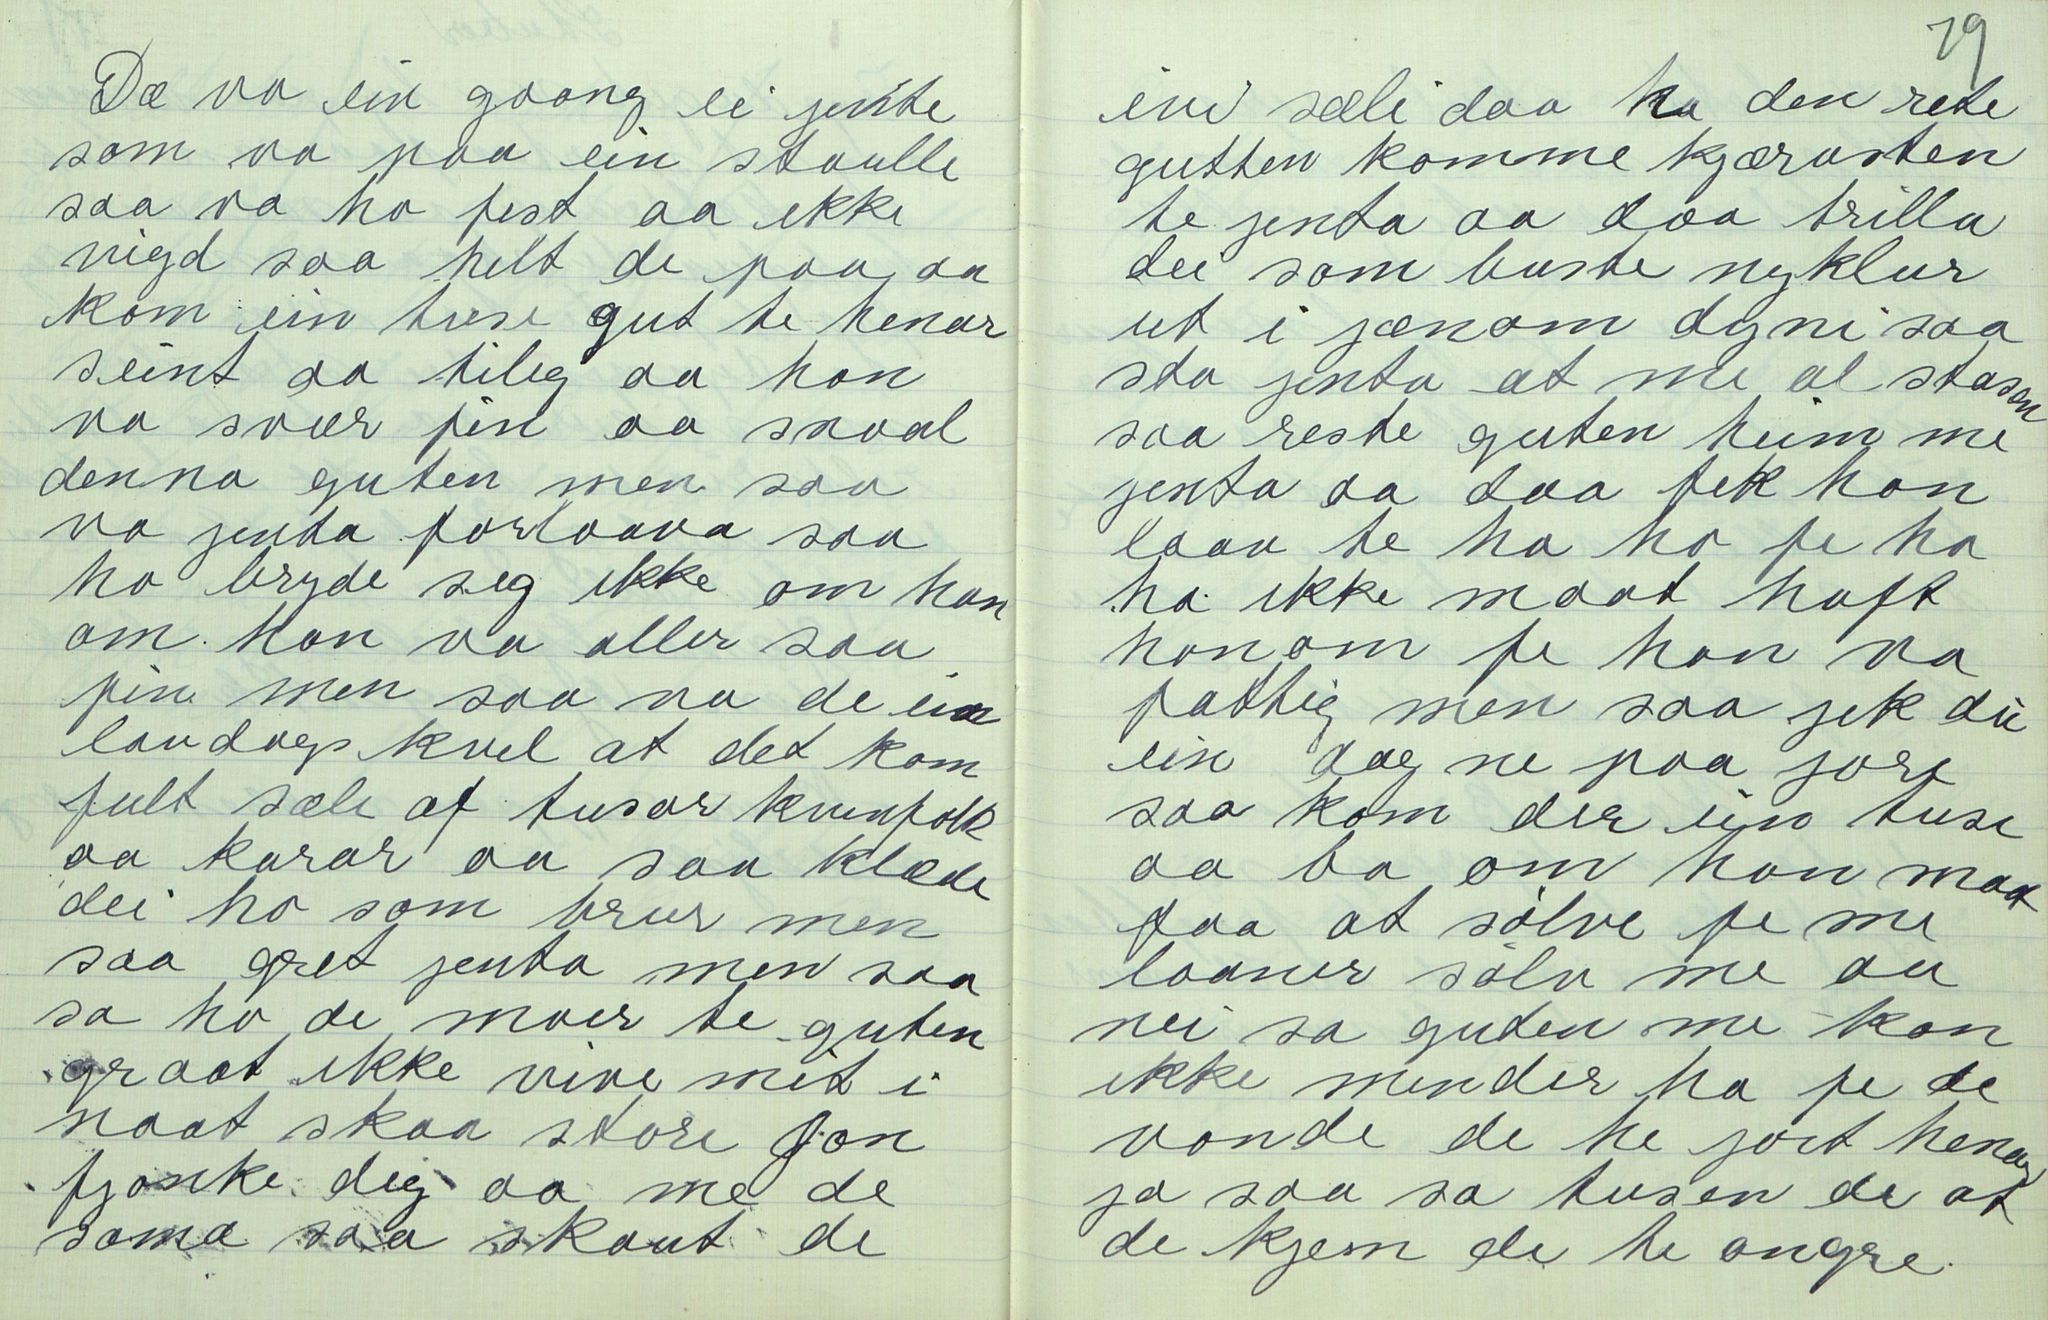 Dæ va ein goong ei jente
som va paa ein staulle
saa va ho fest aa ikke
vigd saa helt de paa aa
kom ein tuse gut te henar
seint aa tileg aa han
va svær fin aa snaal
denna guten men saa
va jenta forloava saa
ho bryde seg ikke om han
om han va aller saa
fin men saa va de ein
laudags kvel at det kom
fult sæle af tusar kvinfolk
aa karar aa saa klæde
dei ho som brur men
saa gret jenta men saa
sa ho de moer te guten
graat ikke vive mit i
naat skaa store Jon
fjonke dig aa me de
sama saa skaut de
79
ini sæli daa ha den rete
gutten komme kjærasten
te jenta aa daa trilla
dei som baste nyklur
ut i jænom dyni saa
sta jenta at me al stasen
saa reste guten heim me
jenta aa daa fek han
laav te ha ho fe ha
ha ikke maat haft
honom fe han va
fattig men saa jek dei
ein dag ne paa jore
saa kom der ein tuse
aa ba om han maat
faa at sølve fe me
laaner sølv me au
nei sa guten me kan
ikke minder ha fe de
vonde de he jort henar
ja saa sa tusen de at
de kjem de te angre.